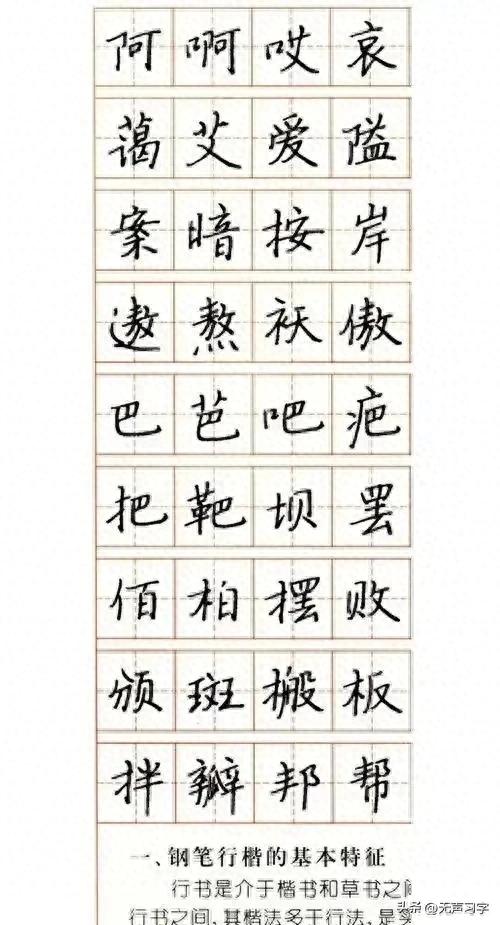 阿啊哎哀
蔼艾爱隘
案暗按岸
遨熬袄傲
巴芭吧疤
把靶坝罢
佰柏摆败
颁斑搬板
拌瓣邦帮
一、钢笔行楷的基本特征
行书是介于楷书和草书之间
行书之间,其楷法多于行法,是实
头条 @无声习字